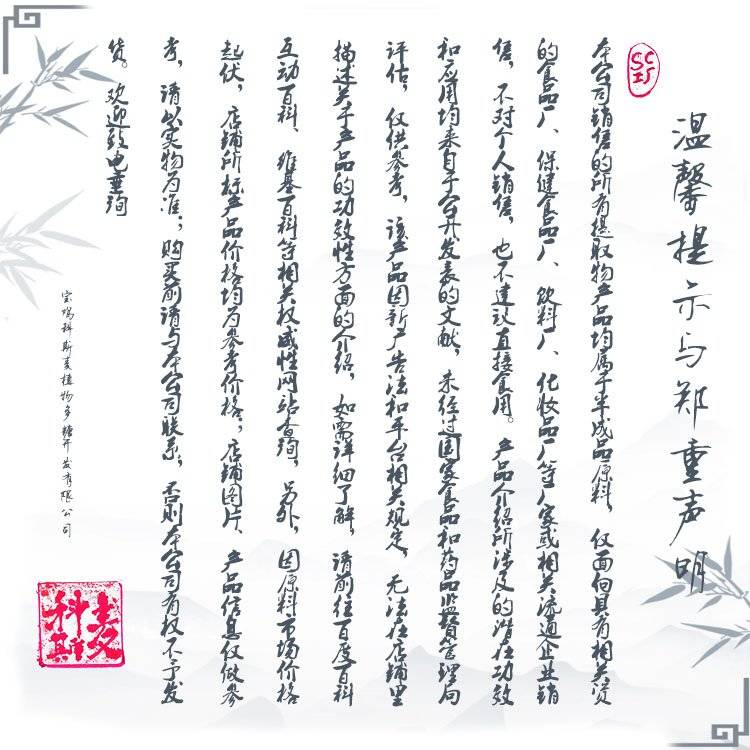 温馨提示与郑重声明
SC
IS
本公司销售的所有提取物产品均属于半成品原料，仅面向具有相关资
的食品厂、保健食品厂、饮料厂、化妆品厂等厂家或相关流通企业销
售，不对个人销售，也不建议直接食用。产品介绍所涉及的潜在功效
和应用均来自于公开发表的文献，未经过国家食品和药品监督管理局
评估，仅供参考，该产品因新广告法和平台相关规定，无法在店铺里
描述关于产品的功效性方面的介绍，如需详细了解，请前往百度百科
互动百科、维基百科等相关权威性网站查询，另外，因原料市场价格
起伏，店铺所标产品价格均为参考价格；店铺图片、产品信息仅做参
考，请以实物为准；购买前请与本公司联系，否则本公司有权不予发
货。欢迎致电垂询
宝鸡科斯麦植物多糖开发有限公司
科斯麦